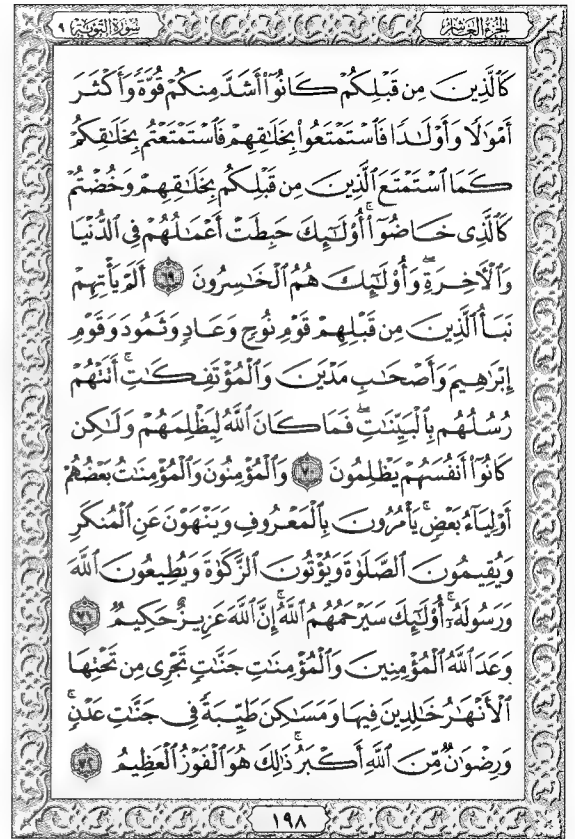 سُورَةُ التَّوْبَةِ ٩
الجُزْءُ العَاشِرُ
كَٱلَّذِينَ مِن قَبْلِكُمْ كَانُوٓا۟ أَشَدَّ مِنكُمْ قُوَّةً وَأَكْثَرَ
أَمْوَٰلًا وَأَوْلَٰدًا فَٱسْتَمْتَعُوا۟ بِخَلَٰقِهِمْ فَٱسْتَمْتَعْتُم بِخَلَٰقِكُمْ
كَمَا ٱسْتَمْتَعَ ٱلَّذِينَ مِن قَبْلِكُم بِخَلَٰقِهِمْ وَخُضْتُمْ
كَٱلَّذِى خَاضُوٓا۟ ۚ أُو۟لَٰٓئِكَ حَبِطَتْ أَعْمَٰلُهُمْ فِى ٱلدُّنْيَا
وَٱلْءَاخِرَةِ ۖ وَأُو۟لَٰٓئِكَ هُمُ ٱلْخَٰسِرُونَ ٦٩ أَلَمْ يَأْتِهِمْ
نَبَأُ ٱلَّذِينَ مِن قَبْلِهِمْ قَوْمِ نُوحٍ وَعَادٍ وَثَمُودَ وَقَوْمِ
إِبْرَٰهِيمَ وَأَصْحَٰبِ مَدْيَنَ وَٱلْمُؤْتَفِكَٰتِ ۚ أَتَتْهُمْ
رُسُلُهُم بِٱلْبَيِّنَٰتِ ۖ فَمَا كَانَ ٱللَّهُ لِيَظْلِمَهُمْ وَلَٰكِن
كَانُوٓا۟ أَنفُسَهُمْ يَظْلِمُونَ ٧٠ وَٱلْمُؤْمِنُونَ وَٱلْمُؤْمِنَٰتُ بَعْضُهُمْ
أَوْلِيَآءُ بَعْضٍ ۚ يَأْمُرُونَ بِٱلْمَعْرُوفِ وَيَنْهَوْنَ عَنِ ٱلْمُنكَرِ
وَيُقِيمُونَ ٱلصَّلَوٰةَ وَيُؤْتُونَ ٱلزَّكَوٰةَ وَيُطِيعُونَ ٱللَّهَ
وَرَسُولَهُۥٓ ۚ أُو۟لَٰٓئِكَ سَيَرْحَمُهُمُ ٱللَّهُ ۗ إِنَّ ٱللَّهَ عَزِيزٌ حَكِيمٌ ٧١
وَعَدَ ٱللَّهُ ٱلْمُؤْمِنِينَ وَٱلْمُؤْمِنَٰتِ جَنَّٰتٍ تَجْرِى مِن تَحْتِهَا
ٱلْأَنْهَٰرُ خَٰلِدِينَ فِيهَا وَمَسَٰكِنَ طَيِّبَةً فِى جَنَّٰتِ عَدْنٍ ۚ
وَرِضْوَٰنٌ مِّنَ ٱللَّهِ أَكْبَرُ ۚ ذَٰلِكَ هُوَ ٱلْفَوْزُ ٱلْعَظِيمُ ٧٢
١٩٨